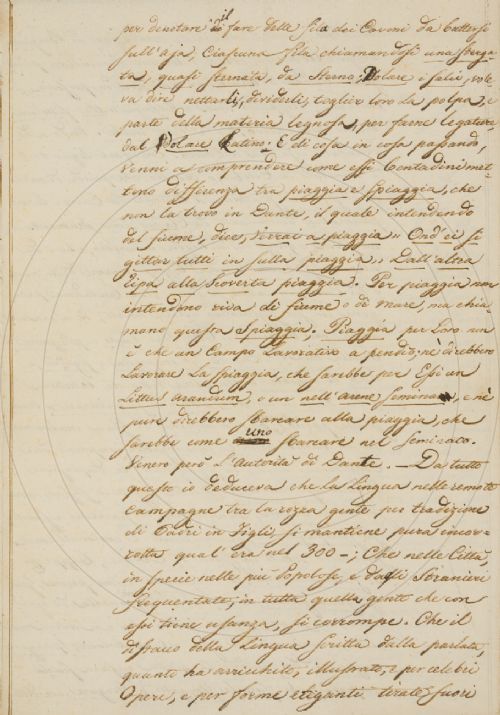 per denotare il fare delle fila dei Covoni da battersi
sull'aja, Ciascuna fila chiamandosi una sterga-
ta, quasi sternata, da Sterno; Dolare i salci, vole-
va dire nettarli, dividerli, toglier loro la polpa, e
parte della materia legnosa, per farne legature
dal Dolare Latino: E di cosa in cosa passando,
venni a comprendere come essi Contadini met-
tono differenza tra piaggia e Spiaggia, che
non la trovo in Dante, il quale intendendo
del fiume, dice, vivrai a piaggia = Ond'ei si
gittar tutti in sulla piaggia = Dall'altra
ripa alla scoverta piaggia. Per piaggia non
intendono riva di fiume o di mare, ma chia-
mano questa Spiaggia. Piaggia per loro non
è che un Campo Lavorativo a pendio; nè direbbero
Lavorare La Spiaggia, che sarebbe per Essi un
Littus arandum, o un nell'arene semina, e nè
pur direbbero sbarcare alla piaggia, che
sarebbe come uno sbarcare nel seminato.
Venero però l'autorità di Dante. — Da tutto
questo io deduceva che la Lingua nelle remote
campagne tra la rozza gente per tradizione
di Padri in Figli, si mantiene pura incor-
rotta qual'era nel 300 -; Che nelle Città,
in specie nelle più Popolose, e dalli Stranieri
frequentate, in tutta quella gente che con
essi tiene usanza, si corrompe. Che il
distacco della Lingua scritta dalla parlata,
quanto ha arricchito, illustrato, e per celebri
Opere, e per forme eleganti tirate fuori